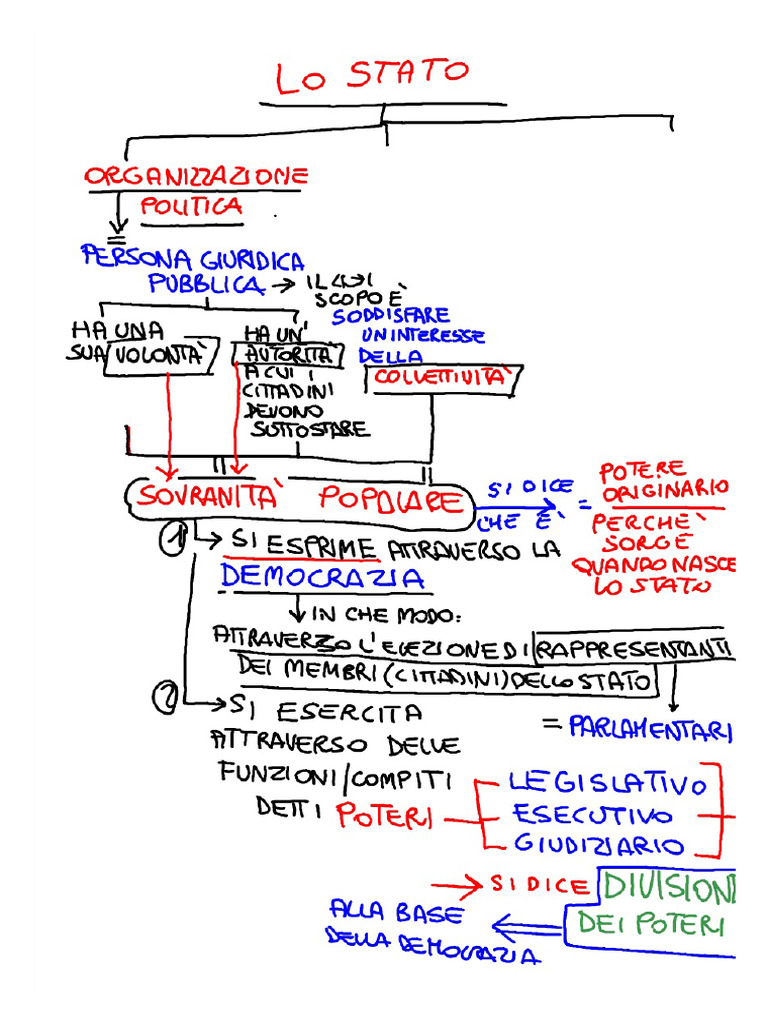 LO STATO
ORGANIZZAZIONE
POLITICA
=
PERSONA GIURIDICA
PUBBLICA → IL CUI
SCOPO È
SODDISFARE
UN INTERESSE
DELLA
COLLETTIVITÀ
HA UNA
SUA VOLONTÀ
HA UN'
AUTORITÀ
A CUI I
CITTADINI
DEVONO
SUTTOSTARE
SOVRANITÀ POPOLARE
SI DICE
CHE È
=
POTERE
ORIGINARIO
PERCHÈ
SORGE
QUANDO NASCE
LO STATO
1 SI ESPRIME ATTRAVERSO LA
DEMOCRAZIA
IN CHE MODO:
ATTRAVERSO L'ELEZIONE DI RAPPRESENTANTI
DEI MEMBRI (CITTADINI) DELLO STATO
= PARLAMENTARI
2 SI ESERCITA
ATTRAVERSO DELLE
FUNZIONI/COMPITI
DETTI POTERI
LEGISLATIVO
ESECUTIVO
GIUDIZIARIO
→ SI DICE DIVISION
DEI POTERI
ALLA BASE
DELLA DEMOCRAZIA